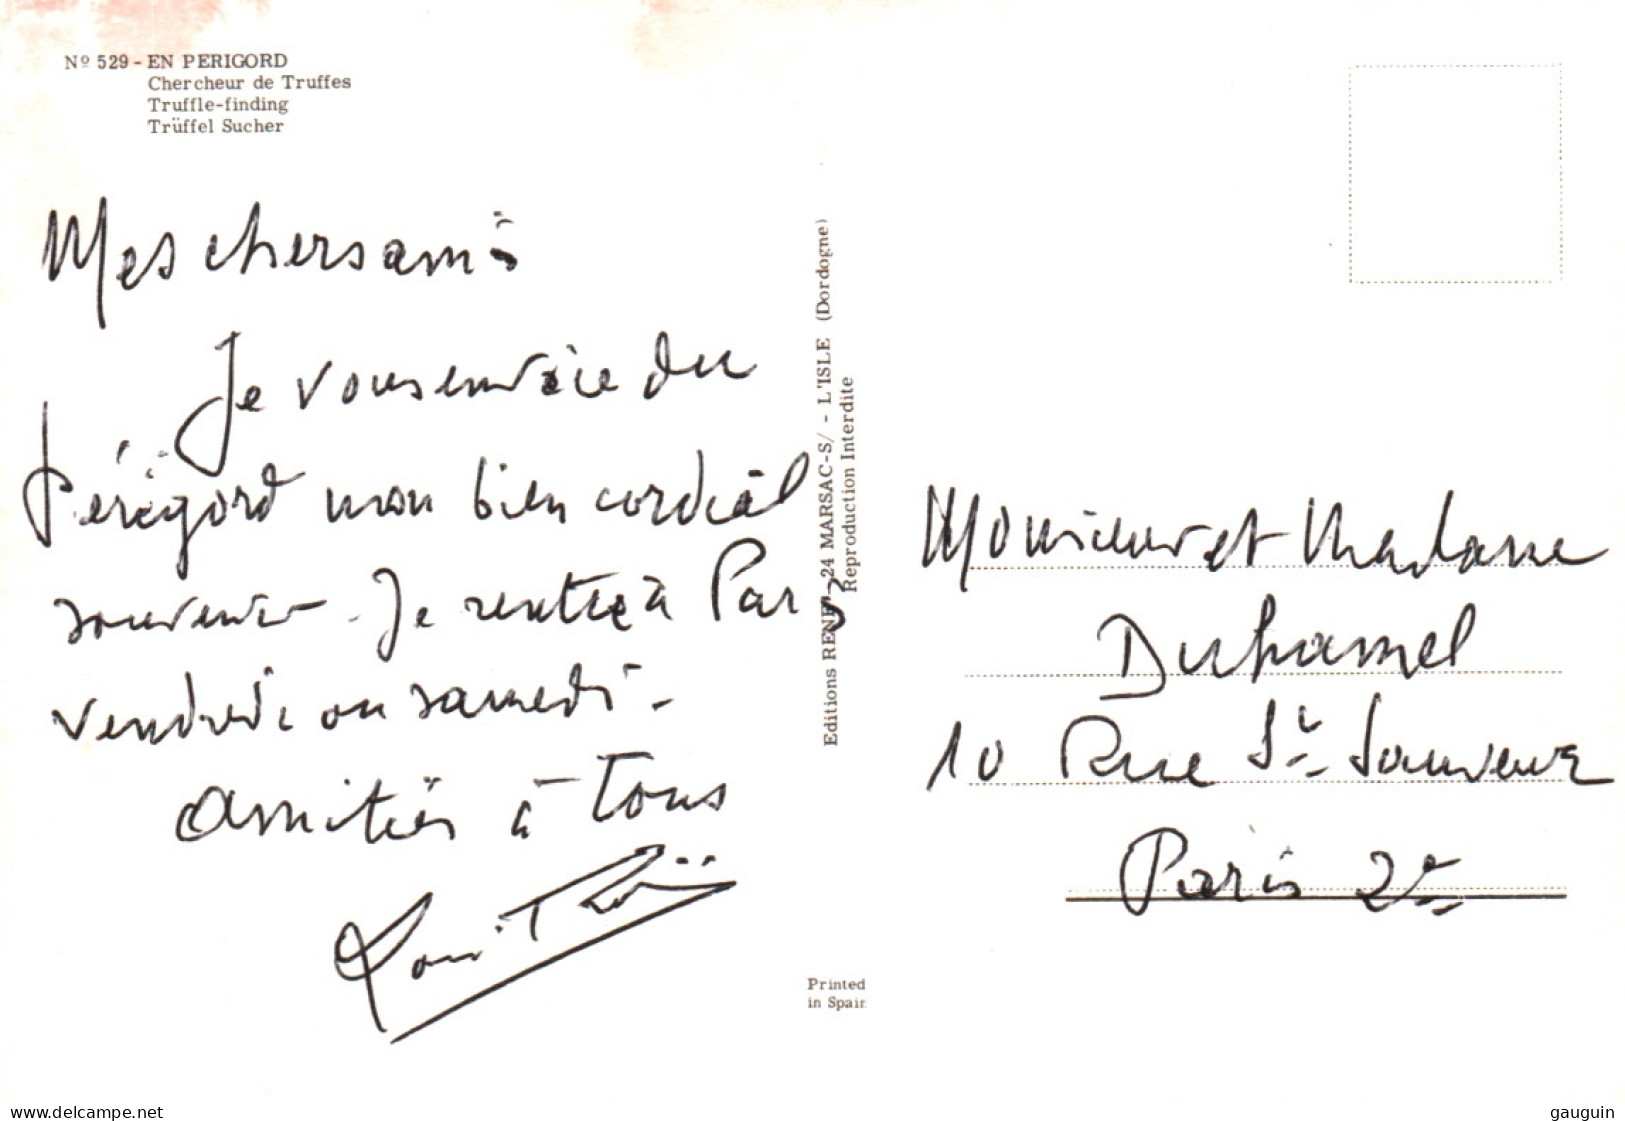 Nº 529 - EN PERIGORD
Chercheur de Truffes
Truffle-finding
Trüffel Sucher
Mes chers amis
Je vous envoie du
Périgord mon bien cordial
souvenir - Je rentre à Paris
vendredi ou samedi -
Amitiés à tous
Editions RENE - 24 MARSAC-S/ - L'ISLE (Dordogne)
Reproduction Interdite
Monsieur et Madame
Duhamel
10 Rue St Sauveur
Paris 2e
Printed
in Spain
delcampe.net
gauguin